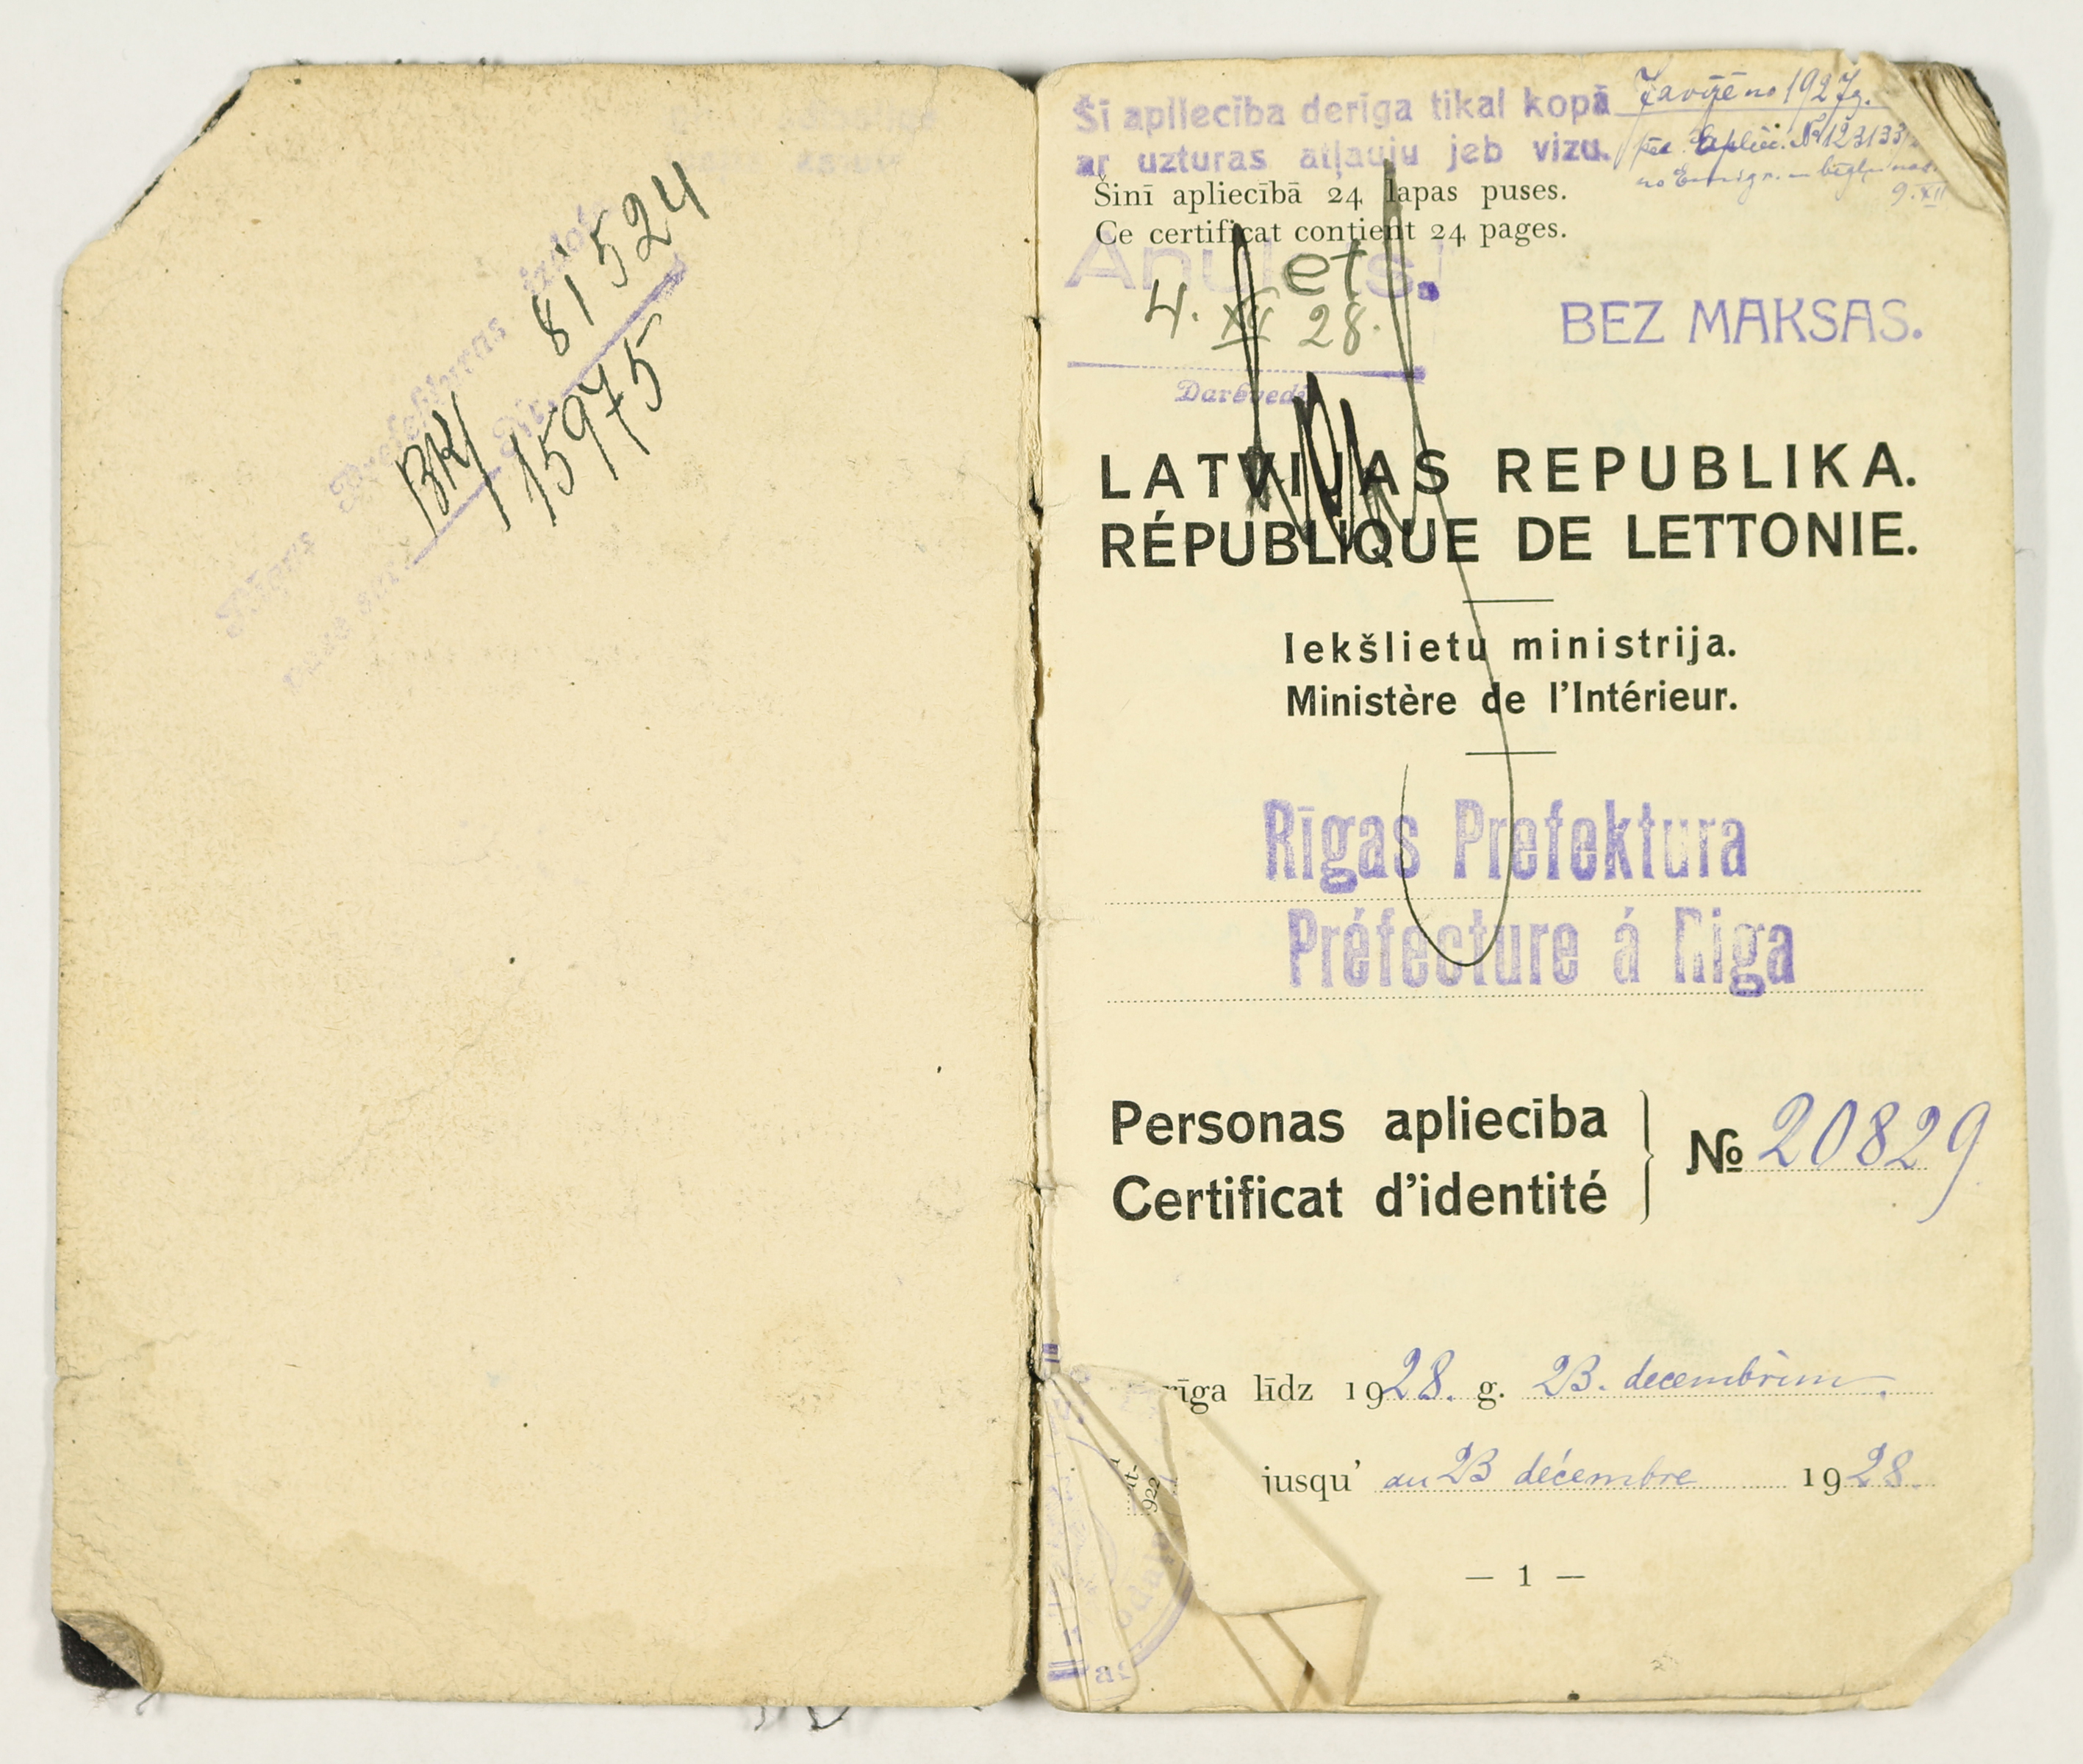 Rīgas Prefektūras izdota
BK/ 81524
Nr. 15975
Šī apliecība derīga tikai kopā
ar uzturas atļauju jeb vizu.
no 1927g.
Apliec. № 123133
9. XII
Šinī apliecībā 24 lapas puses.
Ce certificat contient 24 pages.
Anulets.
4. XII 28.
BEZ MAKSAS.
Darbved
LATVIJAS REPUBLIKA.
RÉPUBLIQUE DE LETTONIE.
Iekšlietu ministrija.
Ministère de l'Intérieur.
Rīgas Prefektura
Préfecture á Riga
Personas apliecība
Certificat d'identité
№ 20829
rīga līdz 1928. g. 23. decembrim.
jusqu' au 23 décembre 1928.
— 1 —